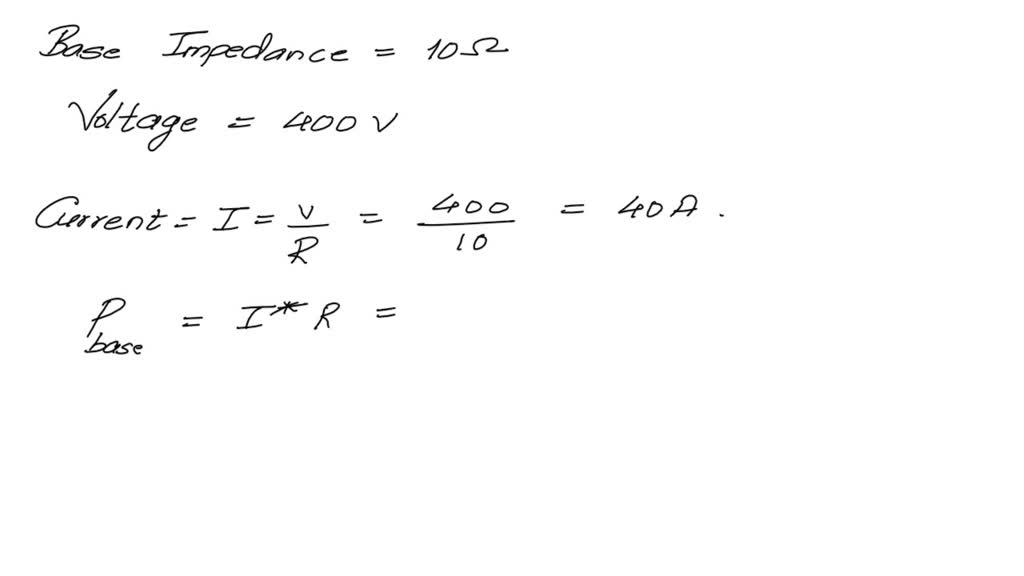 Base Impedance = 10Ω
Voltage = 400 V
Current = I = V/R = 400/10 = 40A.
P_base = I* R =